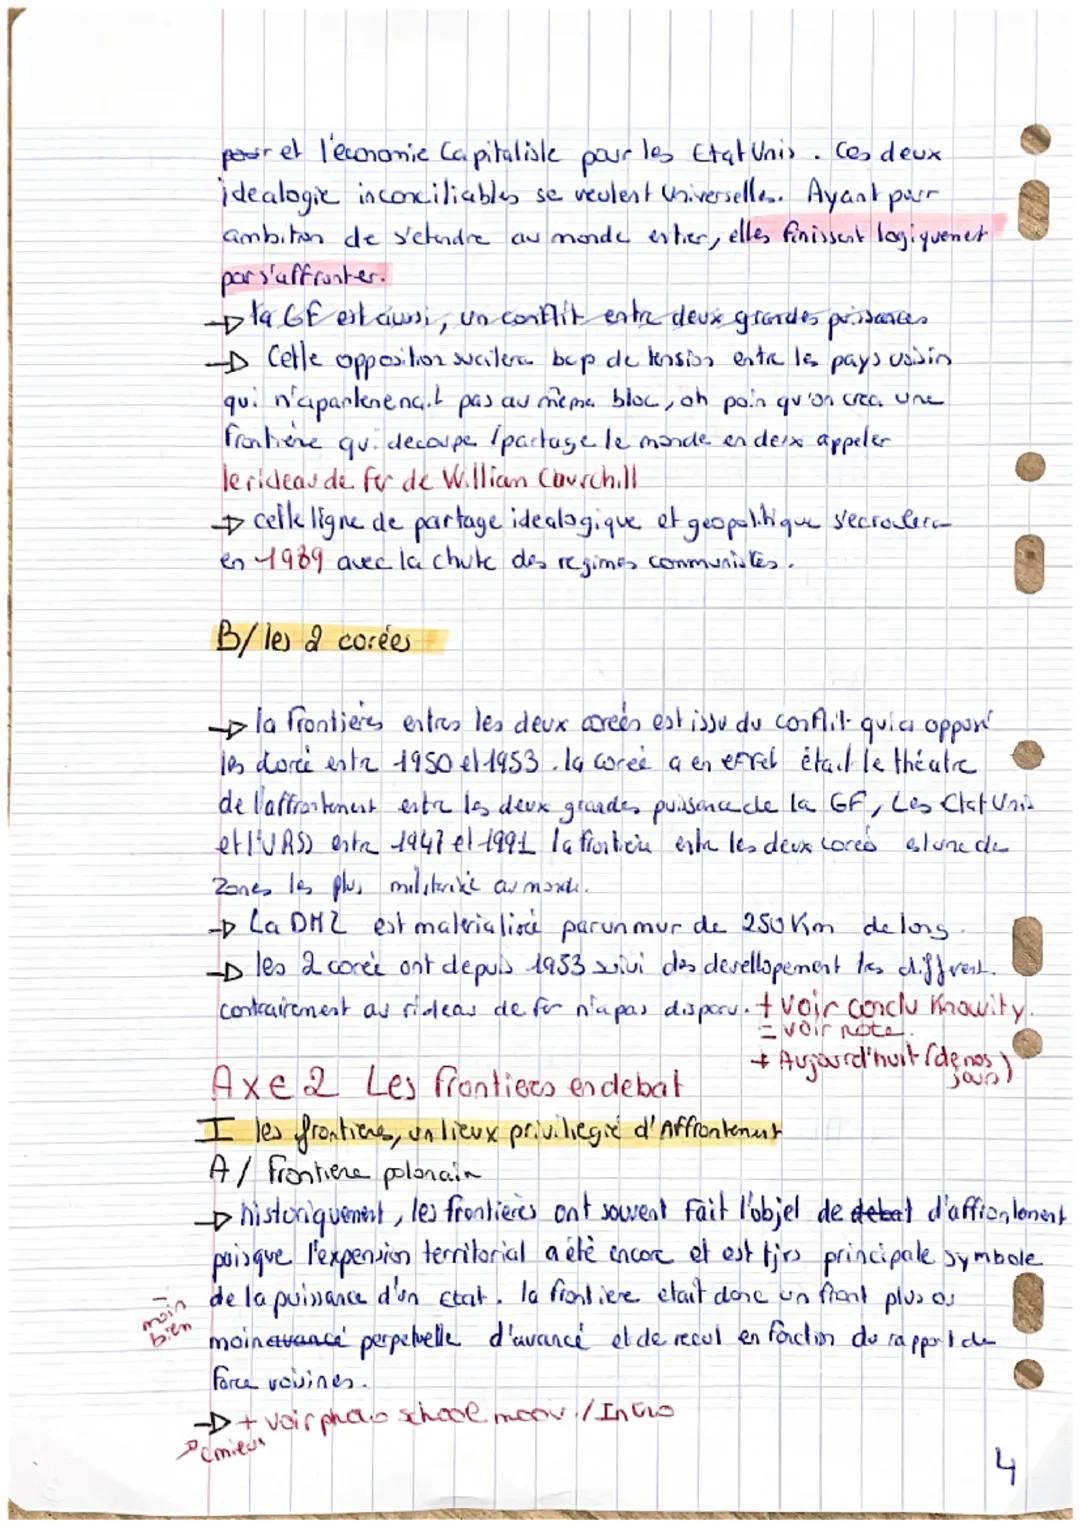 pour et l'économie Capitaliste pour les Etat Unis. Ces deux
idealogie inconciliables se veulent Universelles. Ayant pour
ambition de s'etendre au monde entier, elles finissent logiquement
par s'affronter.
→ la GF est aussi, un conflit entre deux grandes puissances
→ Cette opposition sucitera bcp de tension entre les pays voisin
qui n'apartenenait pas au même bloc, oh poin qu'on crea une
frontière qui decoupe /partage le monde en deux appeler
le rideau de fer de Willian Courchill
→ cette ligne de partage idealogique et geopolitique s'ecroulera
en 1989 avec la chute des regimes communistes.
B/ les 2 corées
→ la frontières entres les deux coreés est issu du conflit qui a opposé
les corée entre 1950 et 1953. la coreé a en effet était le théatre
de l'affrontement entre les deux grandes puissance de la GF, Les Etat Unis
et l'URSS entre 1947 et 1991 la frontière entre les deux coreés est une de
zones les plus militarisé au monde.
→ La DMZ est materialisée par un mur de 250 Km de long.
→ les 2 coreé ont depuis 1953 suivi des devellopement tres different.
contrairement au rideau de fer n'a pas disparu. + voir conclu Knowity.
= voir note.
+ Aujourd'huit (de nos jours)
Axe 2 Les frontiers en debat
I les frontieres, un lieux priviliegié d'Affrontement
A/ Frontiere polonain
→ historiquement, les frontières ont souvent fait l'objet de debat d'affrontement
puisque l'expension territorial a été encore et est tjrs principale symbole
de la puissance d'un etat. la frontiere etait donc un front plus ou
moin avancé perpetuelle d'avancé et de recul en fonction du rapport de
force voisines.
moin
bien
→ + voir photo school moov / Intro
c mieux
4